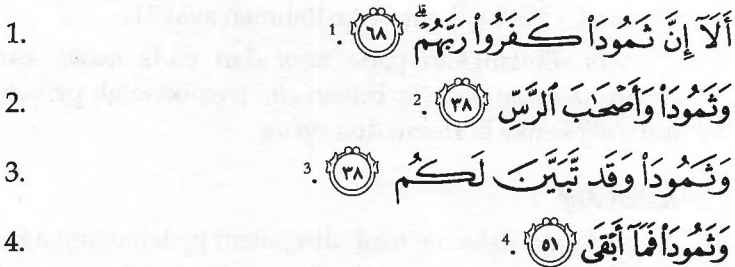 1. أَلَآ إِنَّ ثَمُودَا۟ كَفَرُوا۟ رَبَّهُمْ ۗ ﴿٦٨﴾ .¹
2. وَثَمُودَا۟ وَأَصْحَـٰبَ ٱلرَّسِّ ﴿٣٨﴾ .²
3. وَثَمُودَا۟ وَقَد تَّبَيَّنَ لَكُم ﴿٣٨﴾ .³
4. وَثَمُودَا۟ فَمَآ أَبْقَىٰ ﴿٥١﴾ .⁴